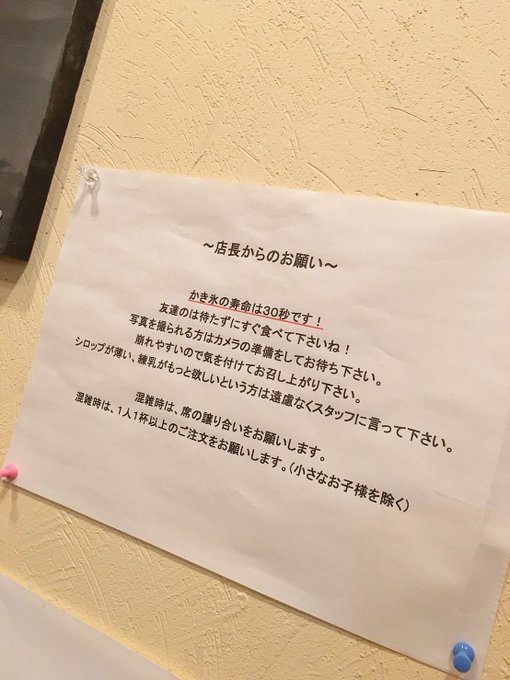 ～店長からのお願い～
かき氷の寿命は30秒です！
友達のは待たずにすぐ食べて下さいね！
写真を撮られる方はカメラの準備をしてお待ち下さい。
崩れやすいので気を付けてお召し上がり下さい。
シロップが薄い、練乳がもっと欲しいという方は遠慮なくスタッフに言って下さい。
混雑時は、席の譲り合いをお願いします。
混雑時は、1人1杯以上のご注文をお願いします。（小さなお子様を除く）